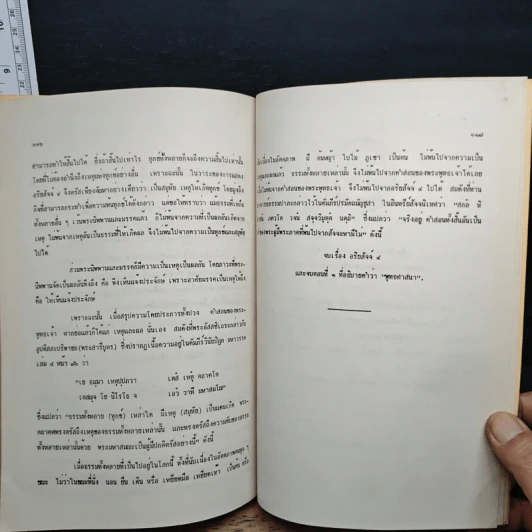 ๑๑๖
สามารถทำให้สิ้นไปได้ ยิ่งถ้าสิ้นไปเท่าไร ทุกข์ทั้งหลายก็จะถึงความสิ้นไปเท่านั้น
โดยที่ไม่ต้องคำนึงถึงเหตุแห่งทุกข์อย่างอื่น เพราะฉะนั้น ในวาระของการแสดง
อริยสัจจ์ ๔ จึงตรัสเพียงตัณหาอย่างเดียวว่า เป็นสมุทัย เหตุให้เกิดทุกข์
ทั้งหลายอื่น ๆ เว้นพระนิพพานและมรรคแล้ว ก็ไม่พ้นจากความที่เป็นผลอันเกิดจาก
เหตุ ไม่พ้นจากเหตุอันเป็นธรรมที่ให้เกิดผล จึงไม่พ้นไปจากความเป็นทุกข์และสมุทัย
ไปได้
ส่วนพระนิพพานและมรรคก็มีความเป็นเหตุเป็นผลกัน โดยภาวะที่พระ-
นิพพานจัดเป็นผลอันพึงถึง คือ พึงเห็นแจ้งประจักษ์ เพราะอาศัยมรรคเป็นเหตุให้ถึง
คือ ให้เห็นแจ้งประจักษ์
เพราะฉะนั้น เมื่อสรุปความโดยประการทั้งปวง คำสอนของพระ-
พุทธเจ้า หากย่อแล้วก็ได้แก่ เหตุและผล นั่นเอง สมดังที่พระอัสสชิเถระกล่าวกับ
อุปติสสะปริพาชก (พระสารีบุตร) ซึ่งปรากฏเนื้อความอยู่ในคัมภีร์วินัยปิฎก มหาวรรค
เล่ม ๔ หน้า ว่า
"เย ธมฺมา เหตุปฺปภวา เตสํ เหตุํ ตถาคโต
เตสญฺจ โย นิโรโธ จ เอวํ วาที มหาสมโณ"
ซึ่งแปลว่า "ธรรมทั้งหลาย (ทุกข์) เหล่าใด มีเหตุ (สมุทัย) เป็นแดนเกิด พระ-
ตถาคตตรัสถึงเหตุของธรรมทั้งหลายเหล่านั้น และตรัสถึงความดับของธรรม
ทั้งหลายเหล่านั้นด้วย พระมหาสมณะเป็นผู้มีปกติตรัสอย่างนี้" ดังนี้
เมื่อธรรมทั้งหลายที่เป็นไปอยู่ในโลกนี้ ทั้งที่นับเนื่องในอัตภาพคน
ขณะ ไม่ว่าในขณะที่นั่ง นอน ยืน เดิน หรือ เหยียดมือ เหยียดเท้า เป็นต้น หรือ
๑๑๗
เนื่องในอัตภาพ มี ต้นหญ้า ใบไม้ ภูเขา เป็นต้น ไม่พ้นจากความเป็น
ธรรมทั้งหลายเหล่านั้น จึงไม่พ้นไปจากคำสอนของพระพุทธเจ้าได้เลย
ไม่พ้นจากคำสอนของพระพุทธเจ้า จึงไม่พ้นไปจากอริยสัจจ์ ๔ ไปได้ สมดังที่ท่าน
"สกลํ หิ
วจนํ สจฺจวินิมุตฺตํ นตฺถิ" ซึ่งแปลว่า "จริงอยู่ คำสอนทั้งสิ้นอันเป็น
ของพระผู้มีพระภาคที่พ้นไปจากสัจจะหามีไม่" ดังนี้
จบเรื่อง อริยสัจจ์ ๔
และจบตอนที่ ๑ ที่อธิบายคำว่า "พุทธศาสนา".